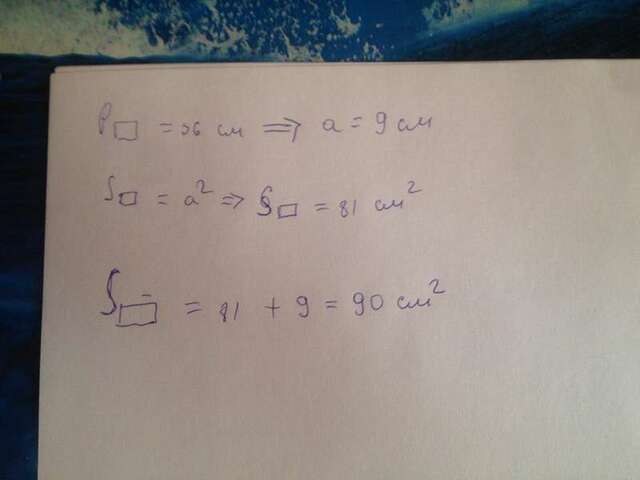 P□ = 36 см ⇒ a = 9 см
S□ = a² ⇒ S□ = 81 см²
S▭ = 81 + 9 = 90 см²